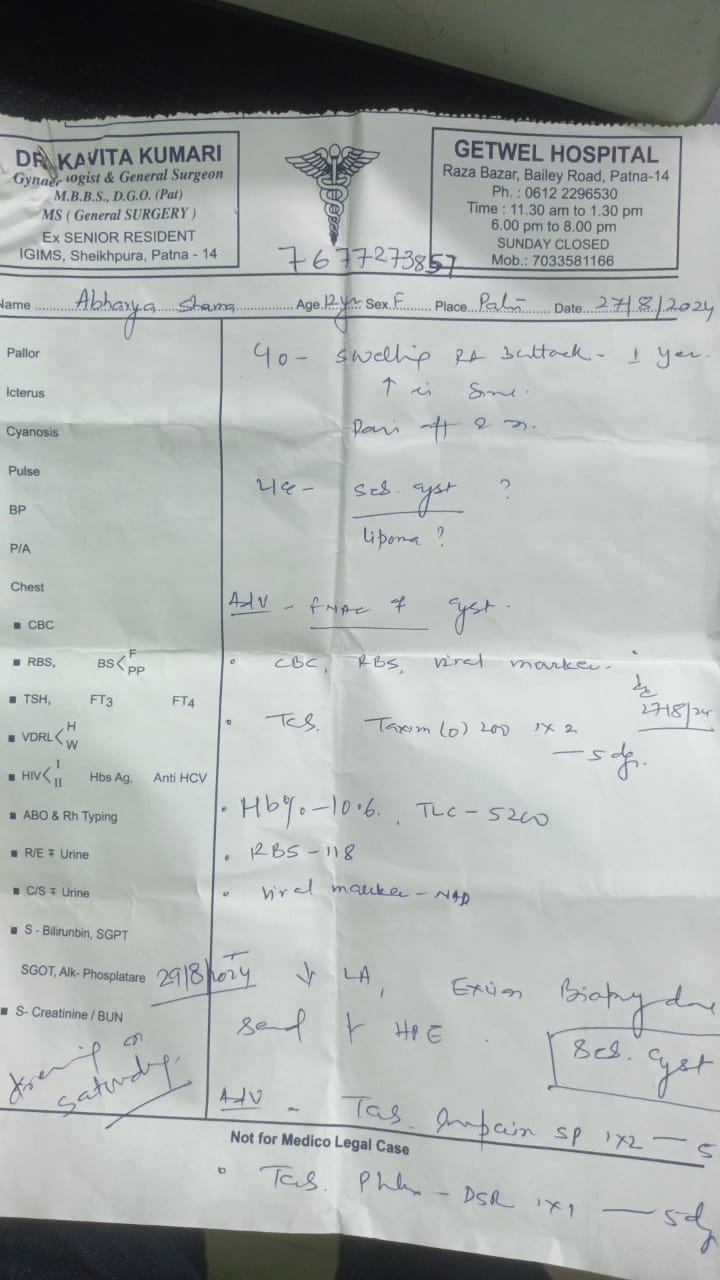 DR KAVITA KUMARI
Gynae ogist & General Surgeon
M.B.B.S., D.G.O. (Pat)
MS ( General SURGERY )
Ex SENIOR RESIDENT
IGIMS, Sheikhpura, Patna - 14
GETWEL HOSPITAL
Raza Bazar, Bailey Road, Patna-14
Ph. : 0612 2296530
Time : 11.30 am to 1.30 pm
6.00 pm to 8.00 pm
SUNDAY CLOSED
Mob.: 7033581166
7677273857
Name Age 12 yr Sex F Place Date 27/8/2024
Pallor
Icterus
Cyanosis
Pulse
BP
P/A
Chest
■ CBC
■ RBS, BS< F PP
■ TSH, FT3 FT4
■ VDRL< H W
■ HIV< I II Hbs Ag, Anti HCV
■ ABO & Rh Typing
■ R/E Urine
■ C/S Urine
■ S - Bilirunbin, SGPT
SGOT, Alk- Phosplatare
■ S- Creatinine / BUN
swelling Buttock - 1 year.
↑ in
seb. cyst ?
Lipoma ?
Adv - FNAC of cyst.
• CBC, RBS, viral marker.
27/8/24
• Tab. Taxim (o) 200 1x2
— 5 dy.
• Hb% - 10.6, TLC - 5200
• RBS - 118
• viral marker - NAD
29/8/2024 ↓ LA, Biopsy done
send HPE
Seb. cyst
Dressing on
Saturday.
Adv - Tab. SP 1x2 — 5
Not for Medico Legal Case
• Tab. - DSR 1x1 — 5 dy